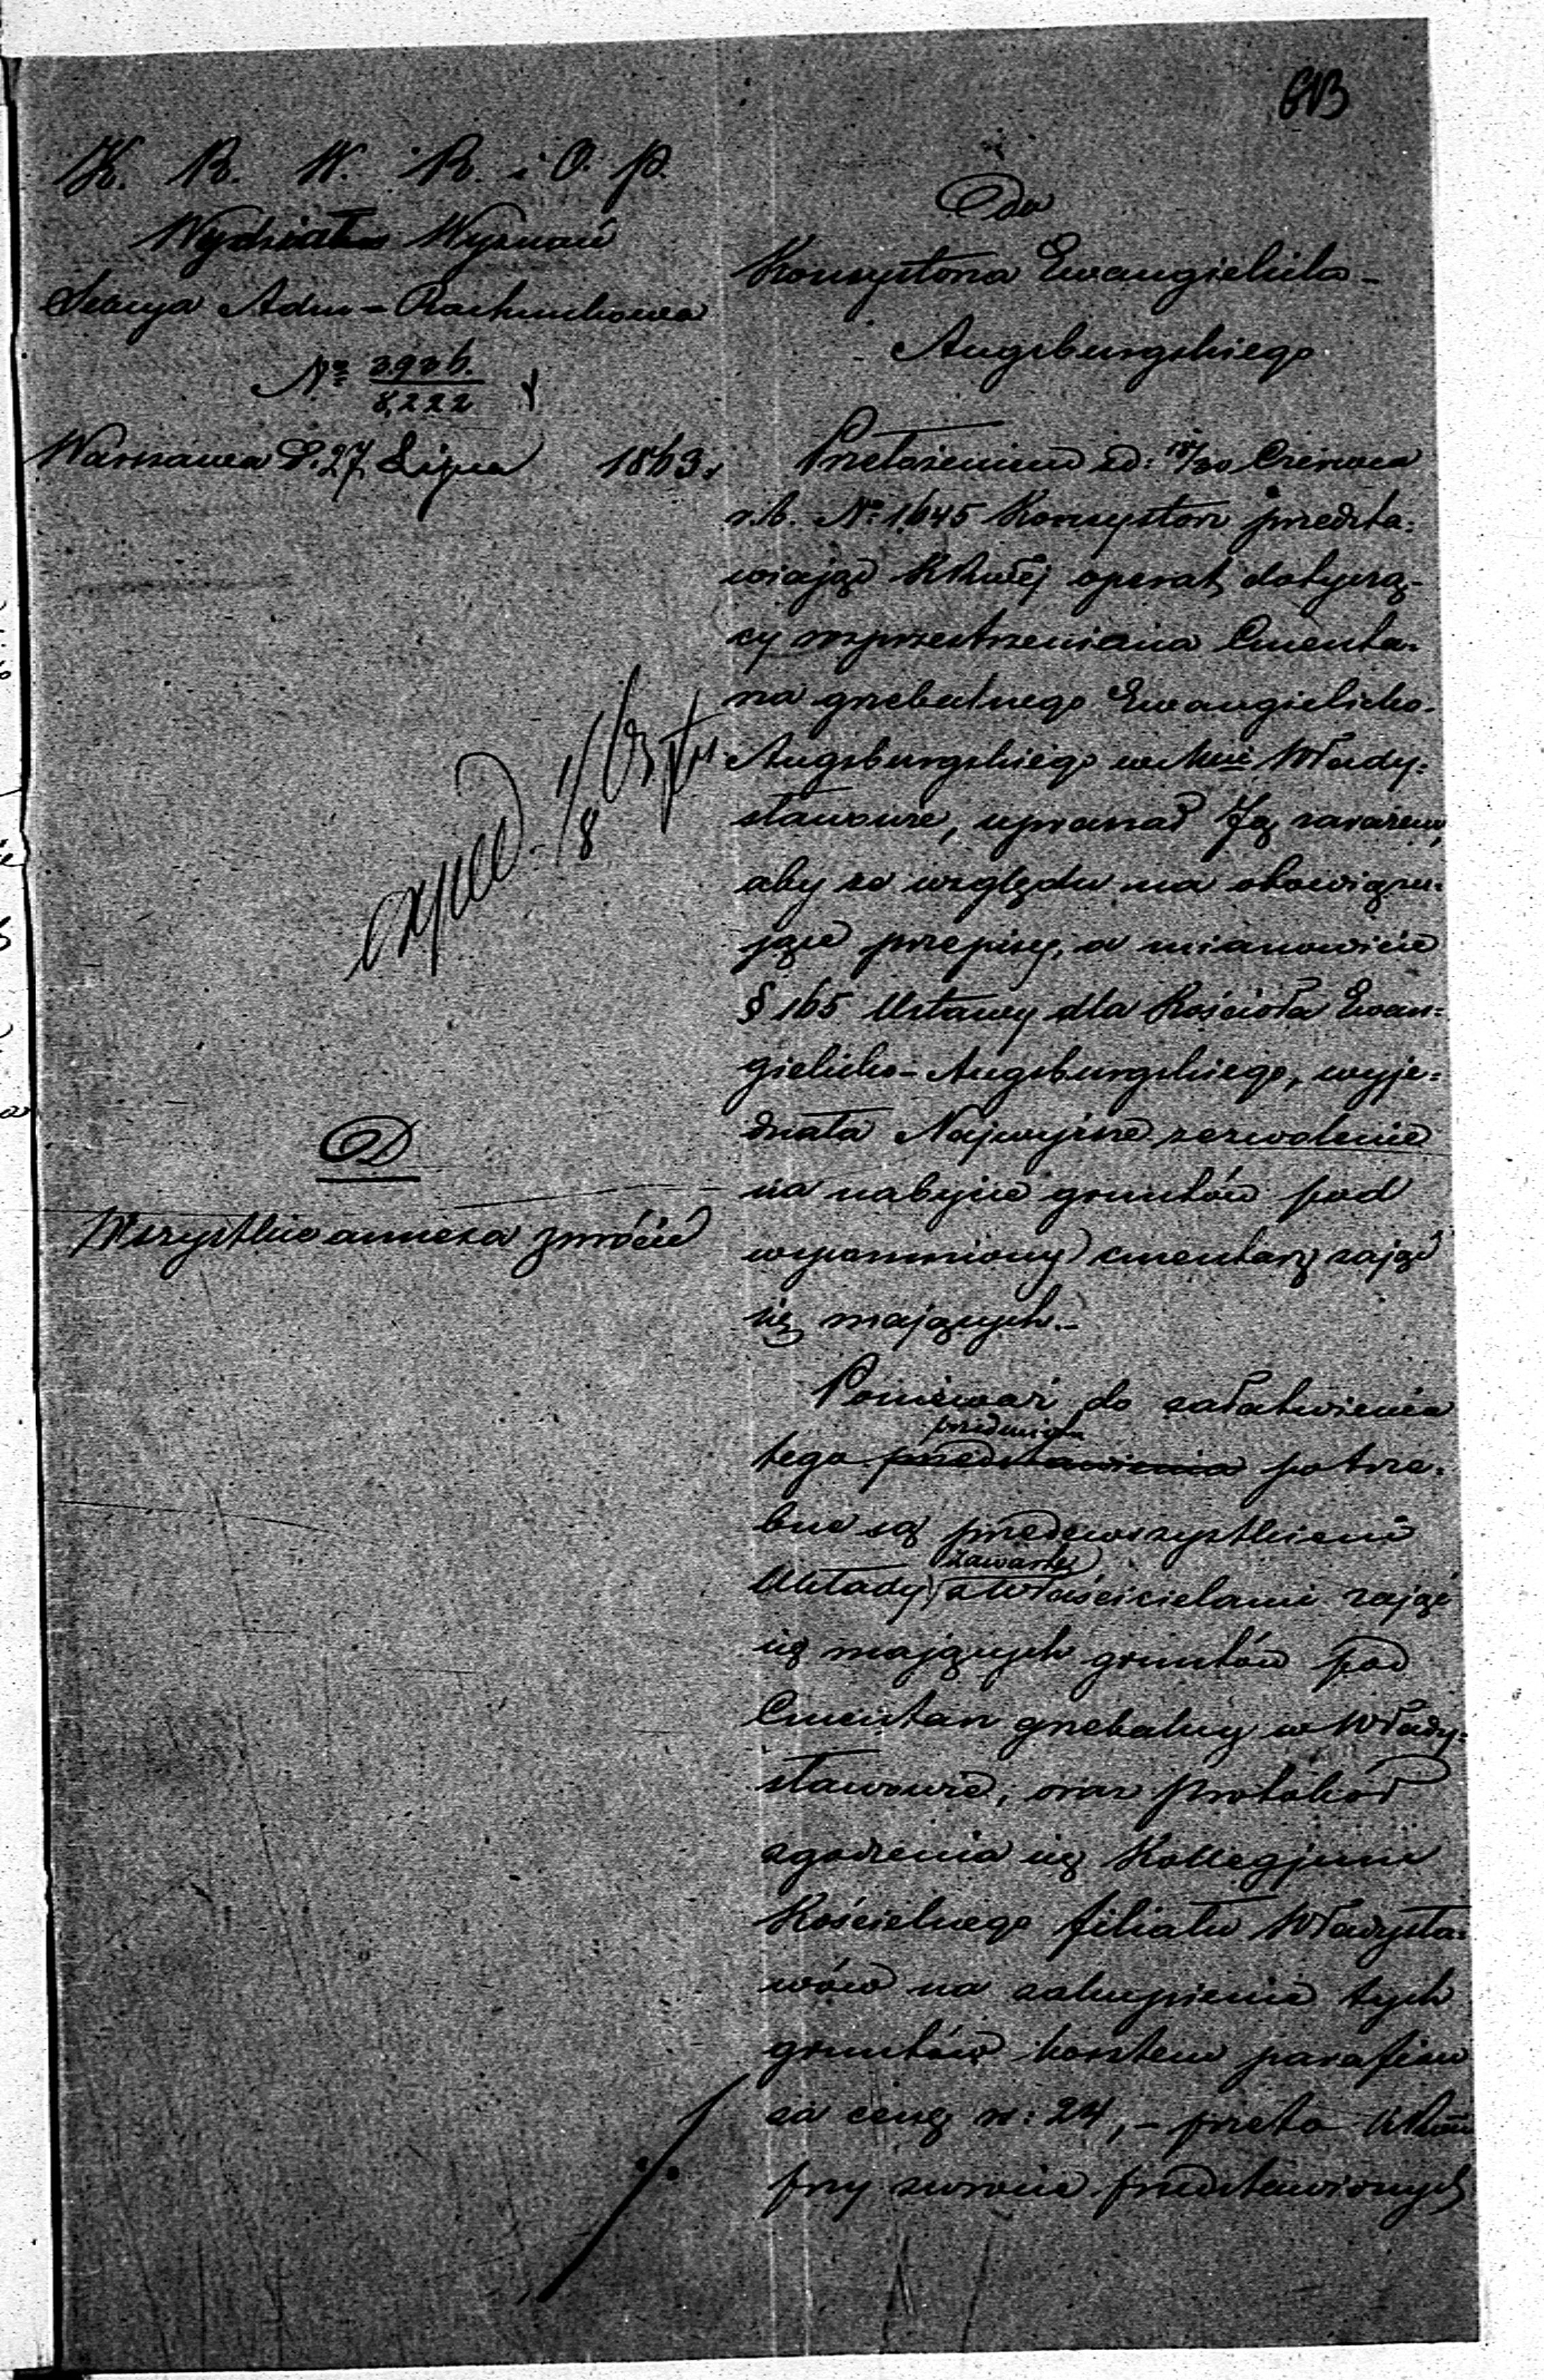 613
K. R. W. R. i O. P.
Wydział Wyznań
Sekcya Adm-Rachunkowa
No 3936.
8,222
Warszawa d. 27 Lipca 1863 r
exped. 1/8 63
D
Wszystkie annexa zwrócić
Do
Konsystorza Ewangielicko-
Augsburgskiego
Przełożeniem z d: 18/30 Czerwca
r.b. No 1645 Konsystorz przedsta:
wiając KRząej operat, dotyczą-
cy rozprzestrzeniania Cmenta-
rza grzebalnego Ewangielicko-
Augsburgskiego w Mcie Włady:
sławowie, upraszał Ją zarazem,
aby ze względu na obowiązu:
jące przepisy, a mianowicie
§ 165 Ustawy dla Kościoła Ewan:
gielicko-Augsburgskiego, wyje:
dnała Najwyższe zezwolenie
na nabycie gruntów pod
wspomniony cmentarz zająć
się mających.-
Ponieważ do załatwienia
przedmiotu
tego przedstawienia potrze:
bne są przedewszystkiem
zawarte
Układy z właścicielami zająć
się mających gruntów pod
Cmentarz grzebalny w Włady:
sławowie, oraz protokół
zgodzenia się Kollegjum
Kościelnego filiału Władysła:
wów na zakupienie tych
gruntów kosztem parafian
za cenę rs: 24, - przeto
przy zwrocie przedstawionych